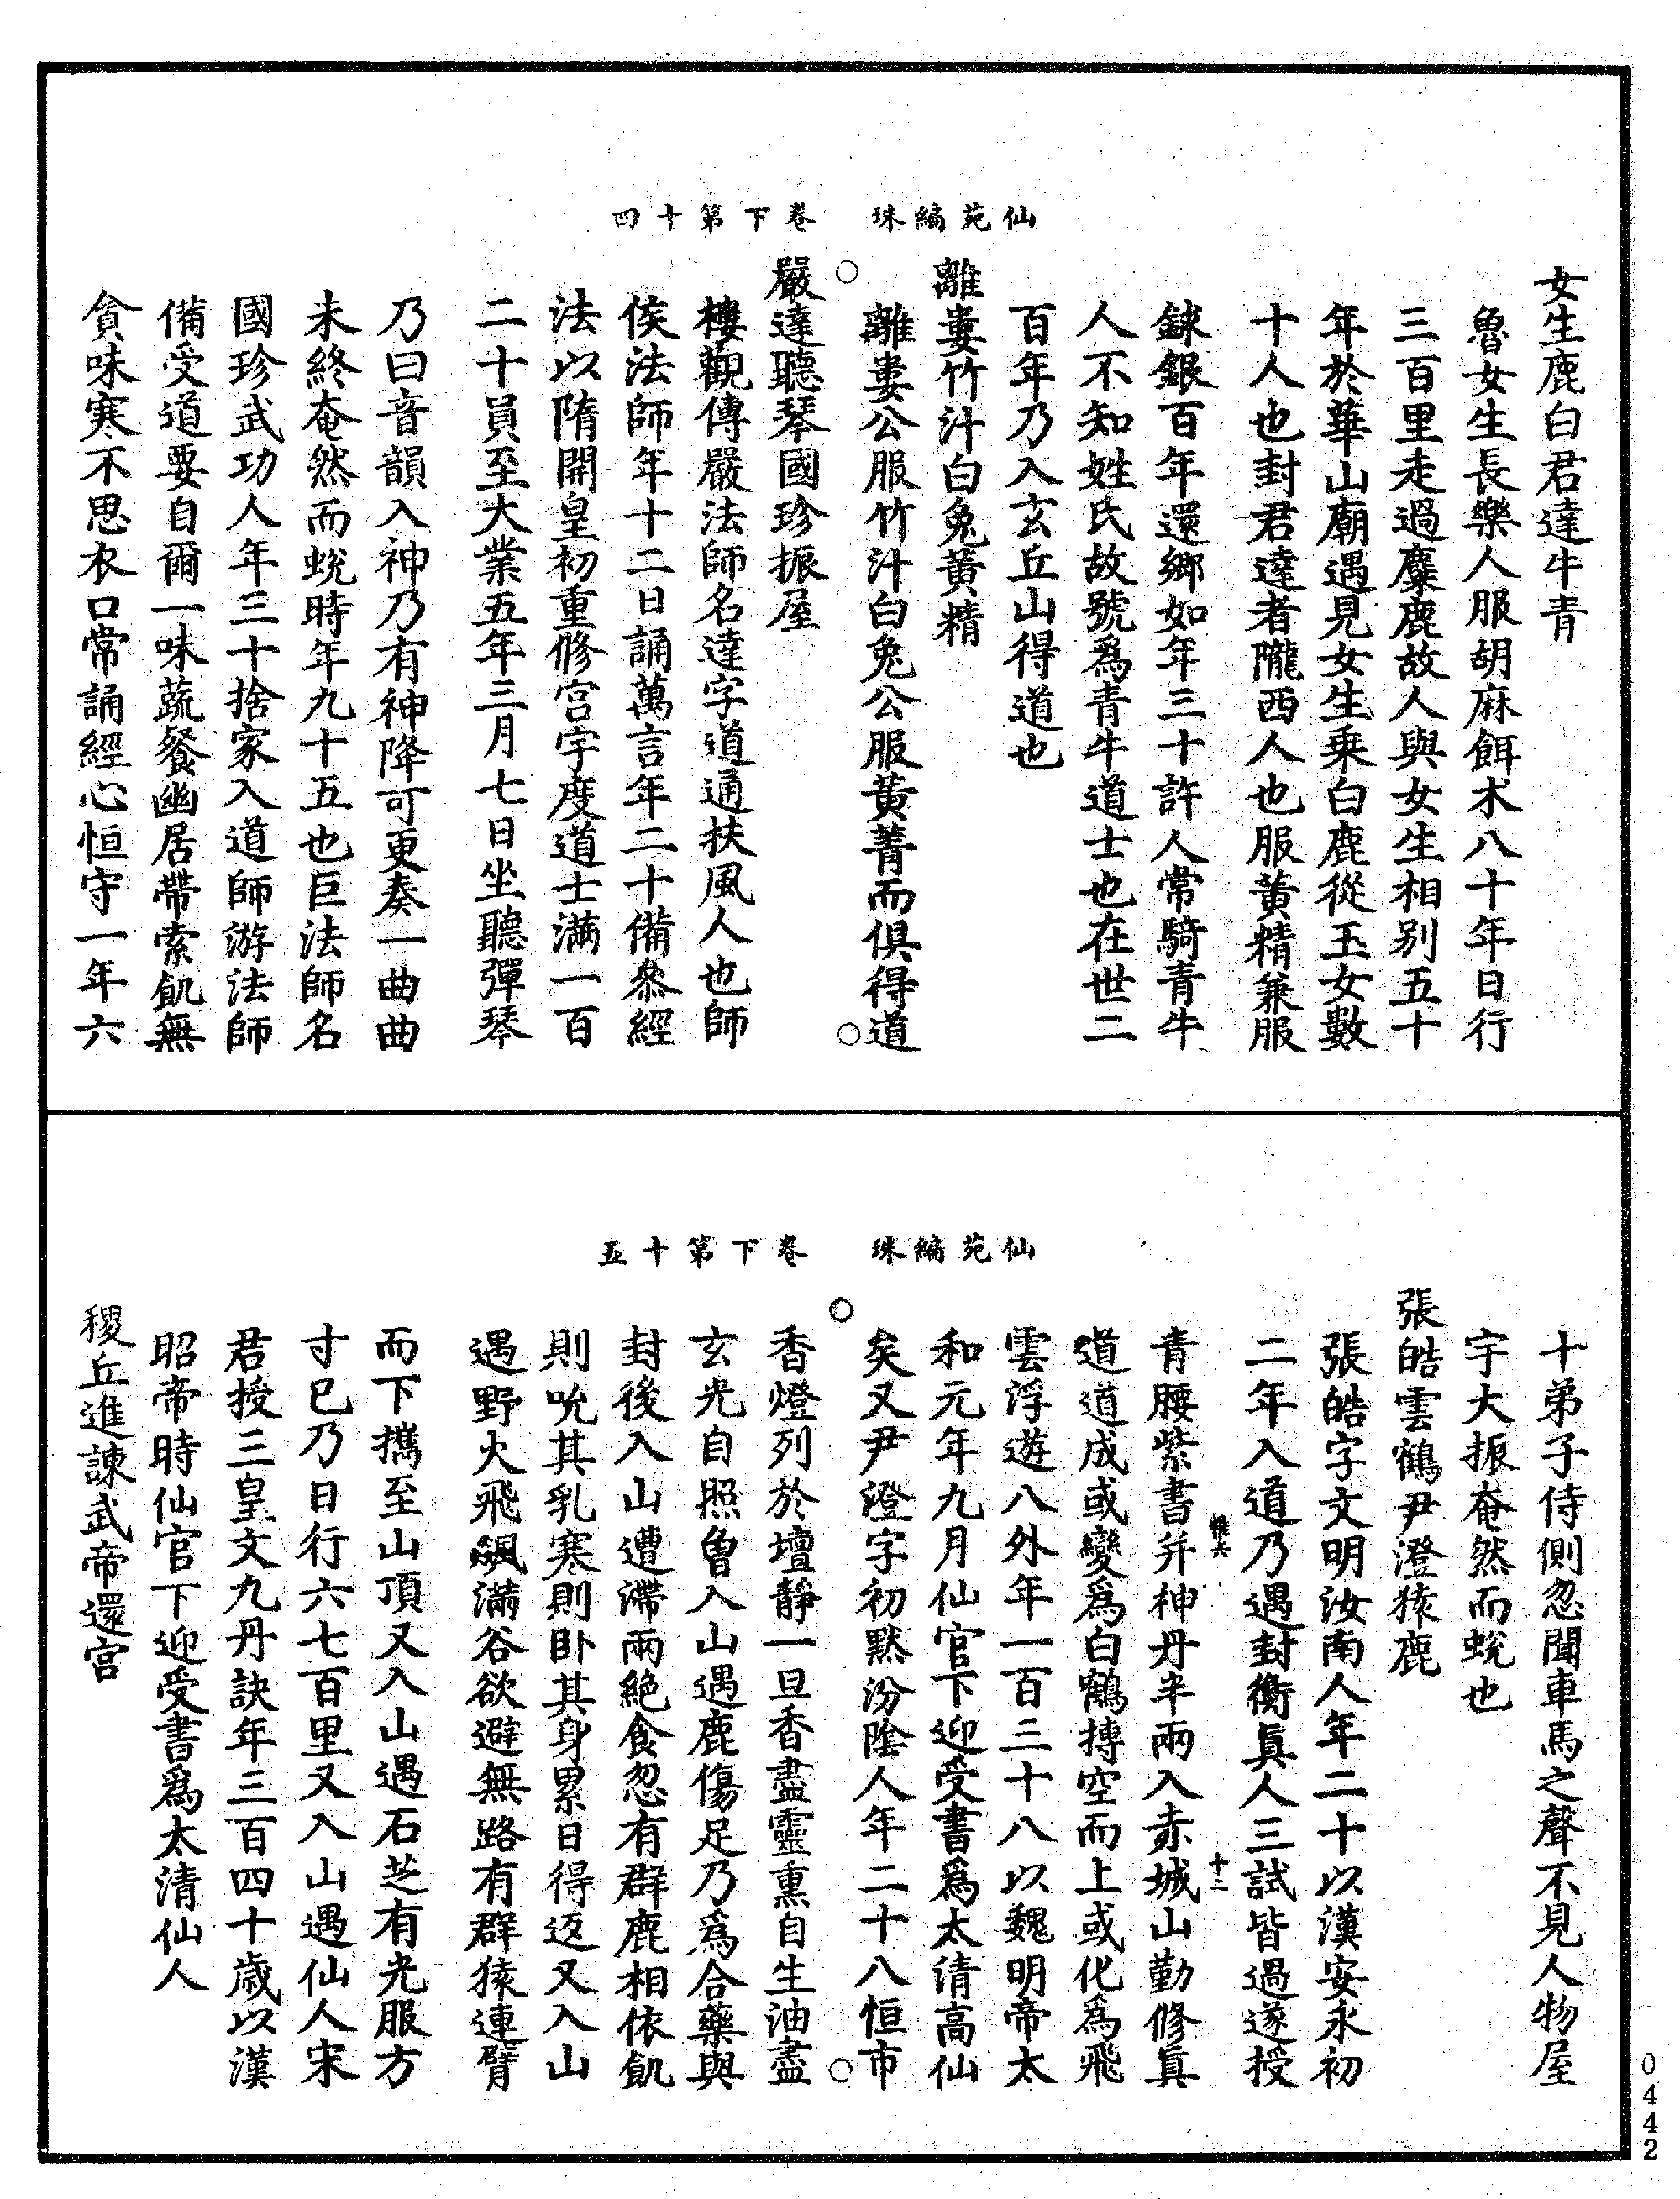 仙苑編珠　卷下第十四
女生鹿白君達牛青
魯女生長樂人服胡麻餌朮八十年日行
三百里走過麋鹿故人與女生相別五十
年於華山廟遇見女生乘白鹿從玉女數
十人也封君達者隴西人也服黃精兼服
鍊銀百年還鄉如年三十許人常騎青牛
人不知姓氏故號爲青牛道士也在世二
百年乃入玄丘山得道也
離婁竹汁白兔黃精
離婁公服竹汁白兔公服黃菁而俱得道
嚴達聽琴國珍振屋
樓觀傳嚴法師名達字道通扶風人也師
侯法師年十二日誦萬言年二十備參經
法以隋開皇初重修宮宇度道士滿一百
二十員至大業五年三月七日坐聽彈琴
乃曰音韻入神乃有神降可更奏一曲曲
未終奄然而蛻時年九十五也巨法師名
國珍武功人年三十捨家入道師游法師
備受道要自爾一味蔬餐幽居帶索飢無
貪味寒不思衣口常誦經心恒守一年六
仙苑編珠　卷下第十五
十弟子侍側忽聞車馬之聲不見人物屋
宇大振奄然而蛻也
張皓雲鶴尹澄猿鹿
張皓字文明汝南人年二十以漢安永初
二年入道乃遇封衡眞人三試皆過遂授
青腰紫書并神丹半兩入赤城山勤修眞
惟六　十二
道道成或變爲白鶴摶空而上或化爲飛
雲浮遊八外年一百三十八以魏明帝太
和元年九月仙官下迎受書爲太清高仙
矣又尹澄字初默汾陰人年二十八恒市
香燈列於壇靜一旦香盡靈熏自生油盡
玄光自照曾入山遇鹿傷足乃爲合藥與
封後入山遭滯雨絕食忽有群鹿相依飢
則吮其乳寒則卧其身累日得返又入山
遇野火飛飈滿谷欲避無路有群猿連臂
而下攜至山頂又入山遇石芝有光服方
寸巳乃日行六七百里又入山遇仙人宋
君授三皇文九丹訣年三百四十歲以漢
昭帝時仙官下迎受書爲太清仙人
稷丘進諫武帝還宮
0442